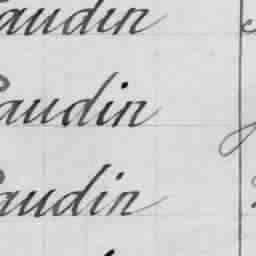 audin
audin
audin